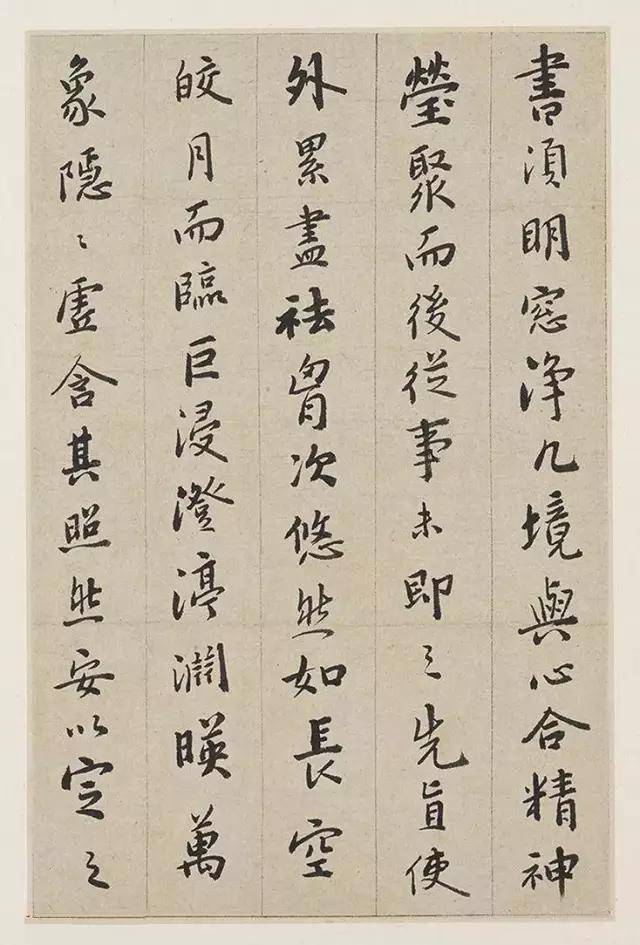 書須明窓淨几境與心合精神
瑩聚而後從事未即之先宜使
外累盡祛胷次悠然如長空
皎月而臨巨浸澄渟淵暎萬
象隱〻虛含其照然安以定之